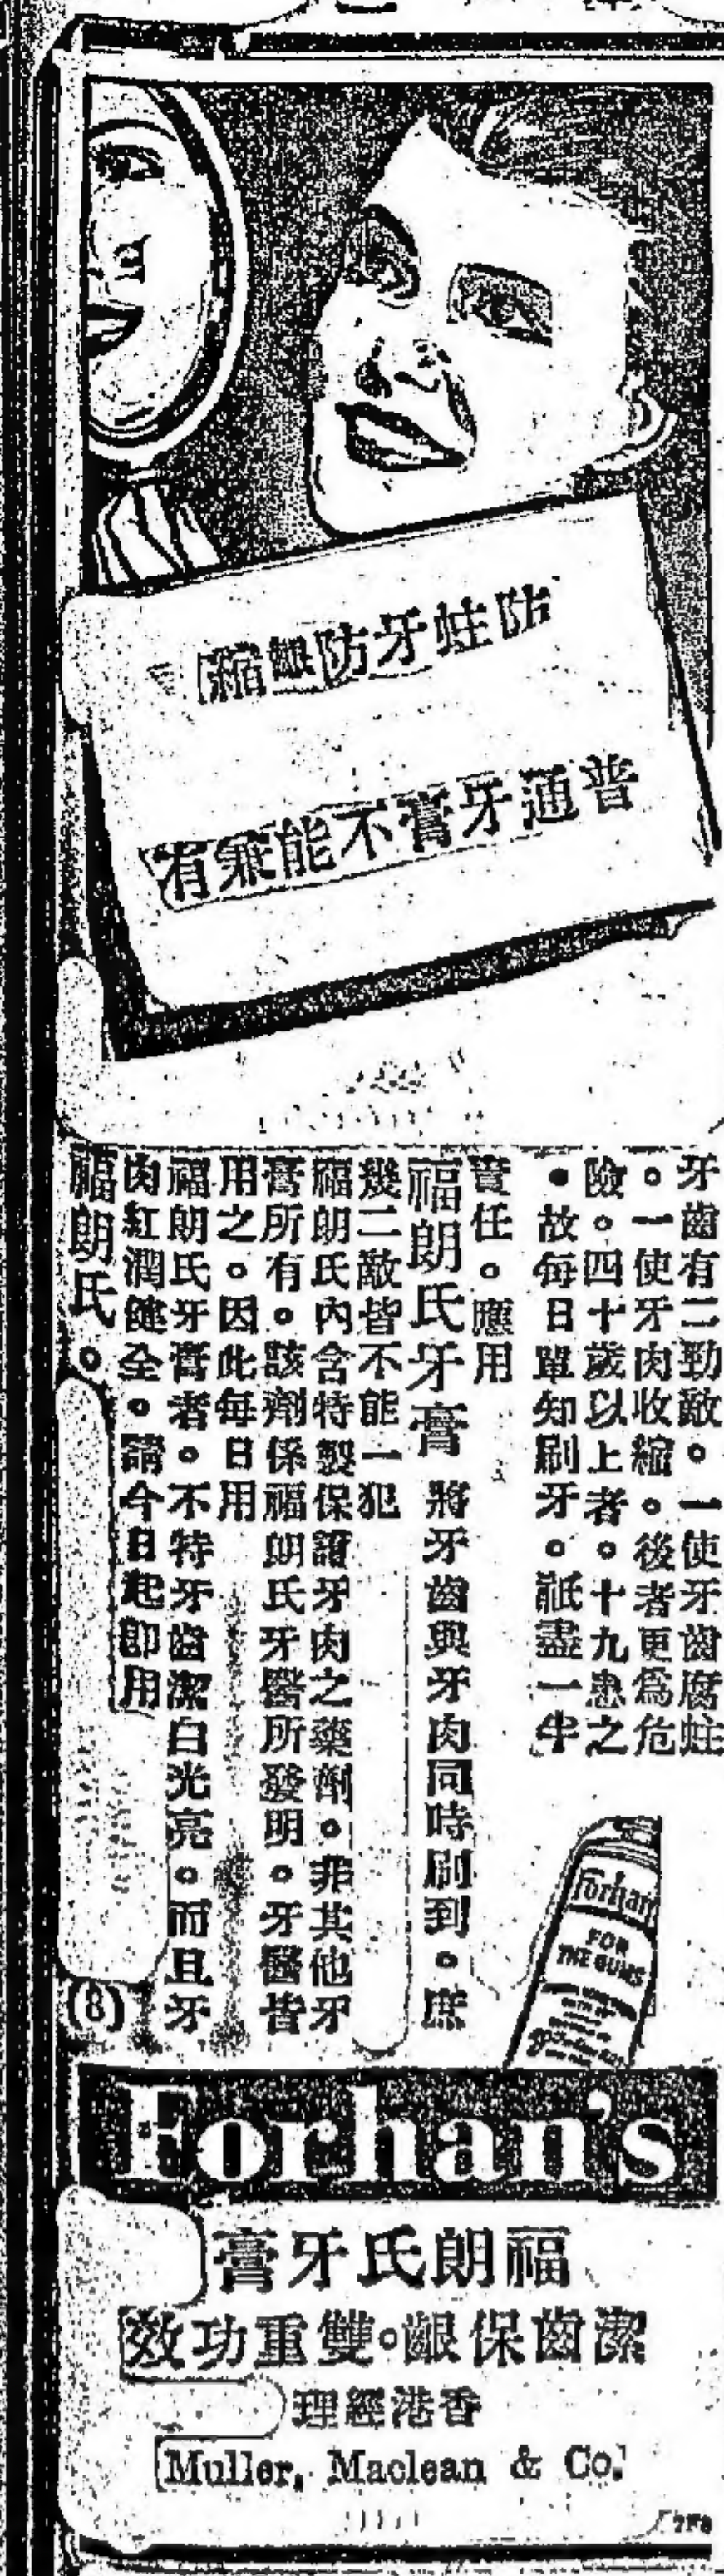 防蛀牙防齦縮
普通牙膏不能兼有
牙齒有二勁敵。一使牙齒腐蛀
。一使牙肉收縮。後者更爲危
險。四十歲以上者。十九患之
。故每日單知刷牙。祇盡一半
責任。應用
福朗氏牙膏 將牙齒與牙肉同時刷到。庶
幾二敵皆不能一犯
福朗氏內含特製保護牙肉之藥劑。非其他牙
膏所有。該劑係福朗氏牙醫所發明。牙醫皆
用之。因此每日用
福朗氏牙膏者。不特牙齒潔白光亮。而且牙
肉紅潤健全。請今日起卽用
福朗氏。
(8)
Forhan's
FOR
THE GUMS
Forhan's
福朗氏牙膏
潔齒保齦。雙重功效
香港經理
Muller, Maclean & Co.